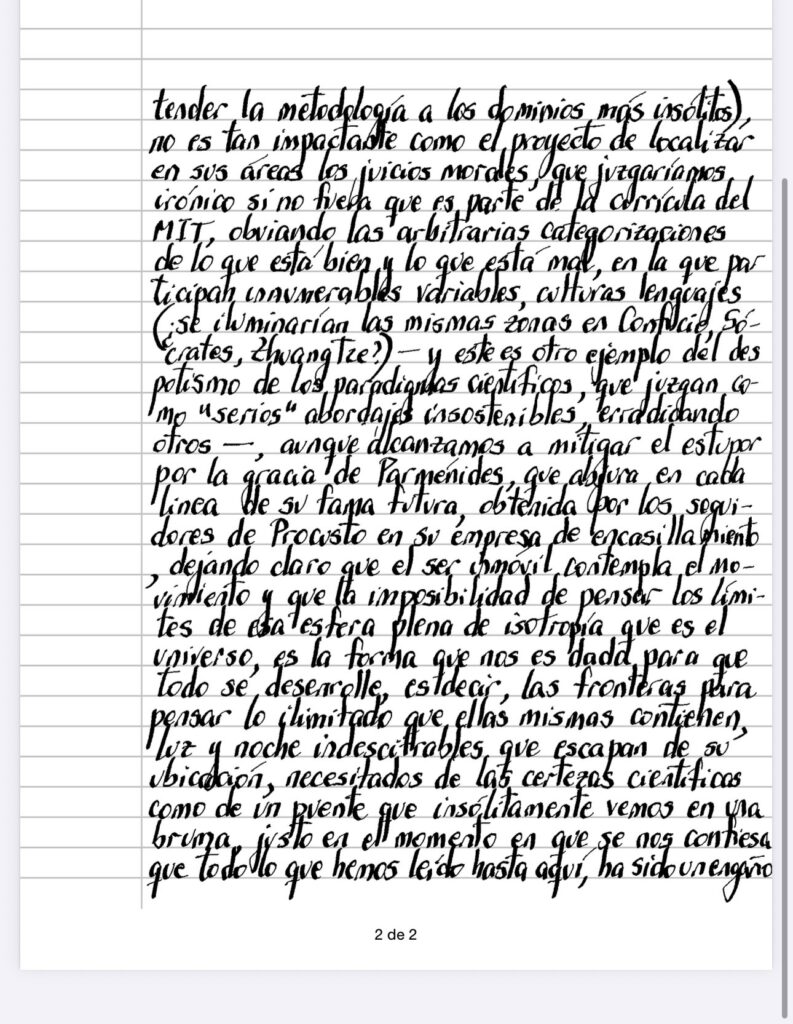 tender la metodología a los dominios más insólitos),
no es tan impactante como el proyecto de localizar
en sus áreas los juicios morales, que juzgaríamos
irónico si no fuera que es parte de la currícula del
MIT, obviando las arbitrarias categorizaciones
de lo que está bien y lo que está mal, en la que par
ticipan innumerables variables, culturas lenguajes
(¿se iluminarían las mismas zonas en Confucio, Só-
crates, Zhuang Tze?) — y este es otro ejemplo del des
potismo de los paradigmas científicos, que juzgan co-
mo "serios" abordajes insostenibles, erradicando
otros —, aunque alcanzamos a mitigar el estupor
por la gracia de Parménides, que abjura en cada
línea de su fama futura, obtenida por los segui-
dores de Procusto en su empresa de encasillamiento
, dejando claro que el ser inmóvil contempla el mo-
vimiento y que la imposibilidad de pensar los lími-
tes de esa esfera plena de isotropía que es el
universo, es la forma que nos es dada para que
todo se desenrolle, es decir, las fronteras para
pensar lo ilimitado que ellas mismas contienen,
luz y noche indescifrables, que escapan de su
ubicación, necesitados de las certezas científicas
como de un puente que insólitamente vemos en una
bruma, justo en el momento en que se nos confiesa
que todo lo que hemos leído hasta aquí, ha sido un engaño
2 de 2